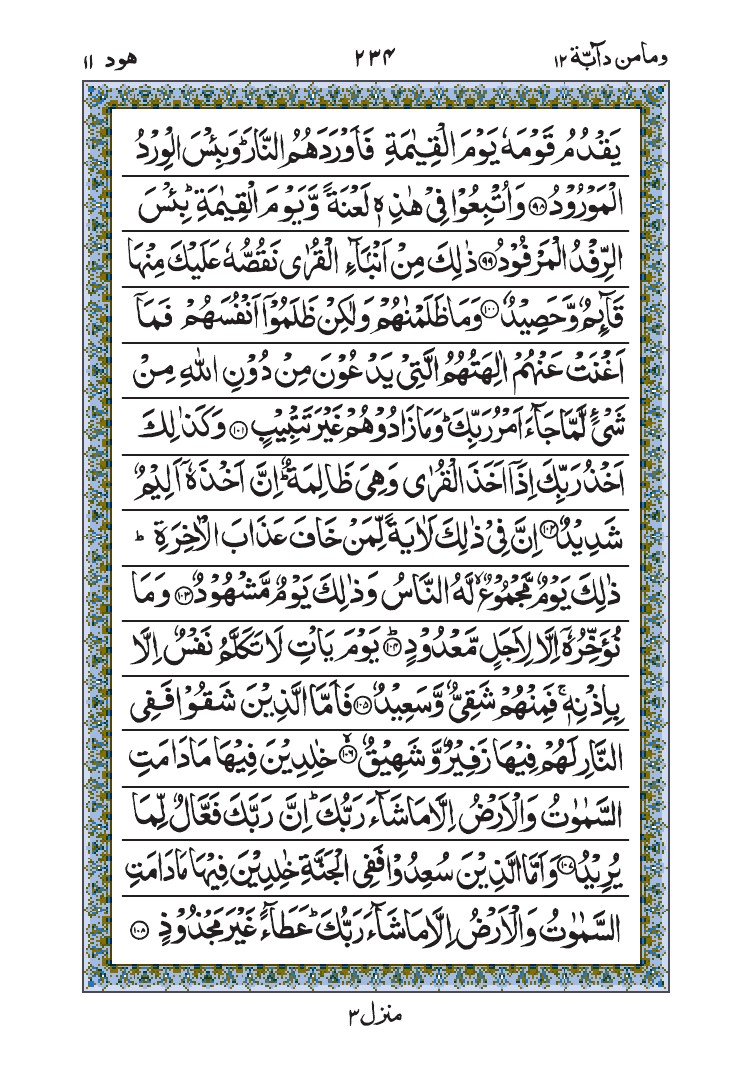 ومامن دآبّة ۱۲
۲۳۴
هود ۱۱
يَقْدُمُ قَوْمَهٗ يَوْمَ الْقِيٰمَةِ فَاَوْرَدَهُمُ النَّارَ ؕ وَبِئْسَ الْوِرْدُ
الْمَوْرُوْدُ ﴿۹۸﴾ وَاُتْبِعُوْا فِيْ هٰذِهٖ لَعْنَةً وَّيَوْمَ الْقِيٰمَةِ ؕ بِئْسَ
الرِّفْدُ الْمَرْفُوْدُ ﴿۹۹﴾ ذٰلِكَ مِنْ اَنْۢبَآءِ الْقُرٰى نَقُصُّهٗ عَلَيْكَ مِنْهَا
قَآئِمٌ وَّحَصِيْدٌ ﴿۱۰۰﴾ وَمَا ظَلَمْنٰهُمْ وَلٰكِنْ ظَلَمُوْۤا اَنْفُسَهُمْ فَمَاۤ
اَغْنَتْ عَنْهُمْ اٰلِهَتُهُمُ الَّتِيْ يَدْعُوْنَ مِنْ دُوْنِ اللّٰهِ مِنْ
شَيْءٍ لَّمَّا جَآءَ اَمْرُ رَبِّكَ ؕ وَمَا زَادُوْهُمْ غَيْرَ تَتْبِيْبٍ ﴿۱۰۱﴾ وَكَذٰلِكَ
اَخْذُ رَبِّكَ اِذَاۤ اَخَذَ الْقُرٰى وَهِيَ ظَالِمَةٌ ؕ اِنَّ اَخْذَهٗۤ اَلِيْمٌ
شَدِيْدٌ ﴿۱۰۲﴾ اِنَّ فِيْ ذٰلِكَ لَاٰيَةً لِّمَنْ خَافَ عَذَابَ الْاٰخِرَةِ ؕ
ذٰلِكَ يَوْمٌ مَّجْمُوْعٌ ۙ لَّهُ النَّاسُ وَذٰلِكَ يَوْمٌ مَّشْهُوْدٌ ﴿۱۰۳﴾ وَمَا
نُؤَخِّرُهٗۤ اِلَّا لِاَجَلٍ مَّعْدُوْدٍ ؕ ﴿۱۰۴﴾ يَوْمَ يَاْتِ لَا تَكَلَّمُ نَفْسٌ اِلَّا
بِاِذْنِهٖ ۚ فَمِنْهُمْ شَقِيٌّ وَّسَعِيْدٌ ﴿۱۰۵﴾ فَاَمَّا الَّذِيْنَ شَقُوْا فَفِي
النَّارِ لَهُمْ فِيْهَا زَفِيْرٌ وَّشَهِيْقٌ ۙ ﴿۱۰۶﴾ خٰلِدِيْنَ فِيْهَا مَا دَامَتِ
السَّمٰوٰتُ وَالْاَرْضُ اِلَّا مَا شَآءَ رَبُّكَ ؕ اِنَّ رَبَّكَ فَعَّالٌ لِّمَا
يُرِيْدُ ﴿۱۰۷﴾ وَاَمَّا الَّذِيْنَ سُعِدُوْا فَفِي الْجَنَّةِ خٰلِدِيْنَ فِيْهَا مَا دَامَتِ
السَّمٰوٰتُ وَالْاَرْضُ اِلَّا مَا شَآءَ رَبُّكَ ؕ عَطَآءً غَيْرَ مَجْذُوْذٍ ﴿۱۰۸﴾
منزل ۳